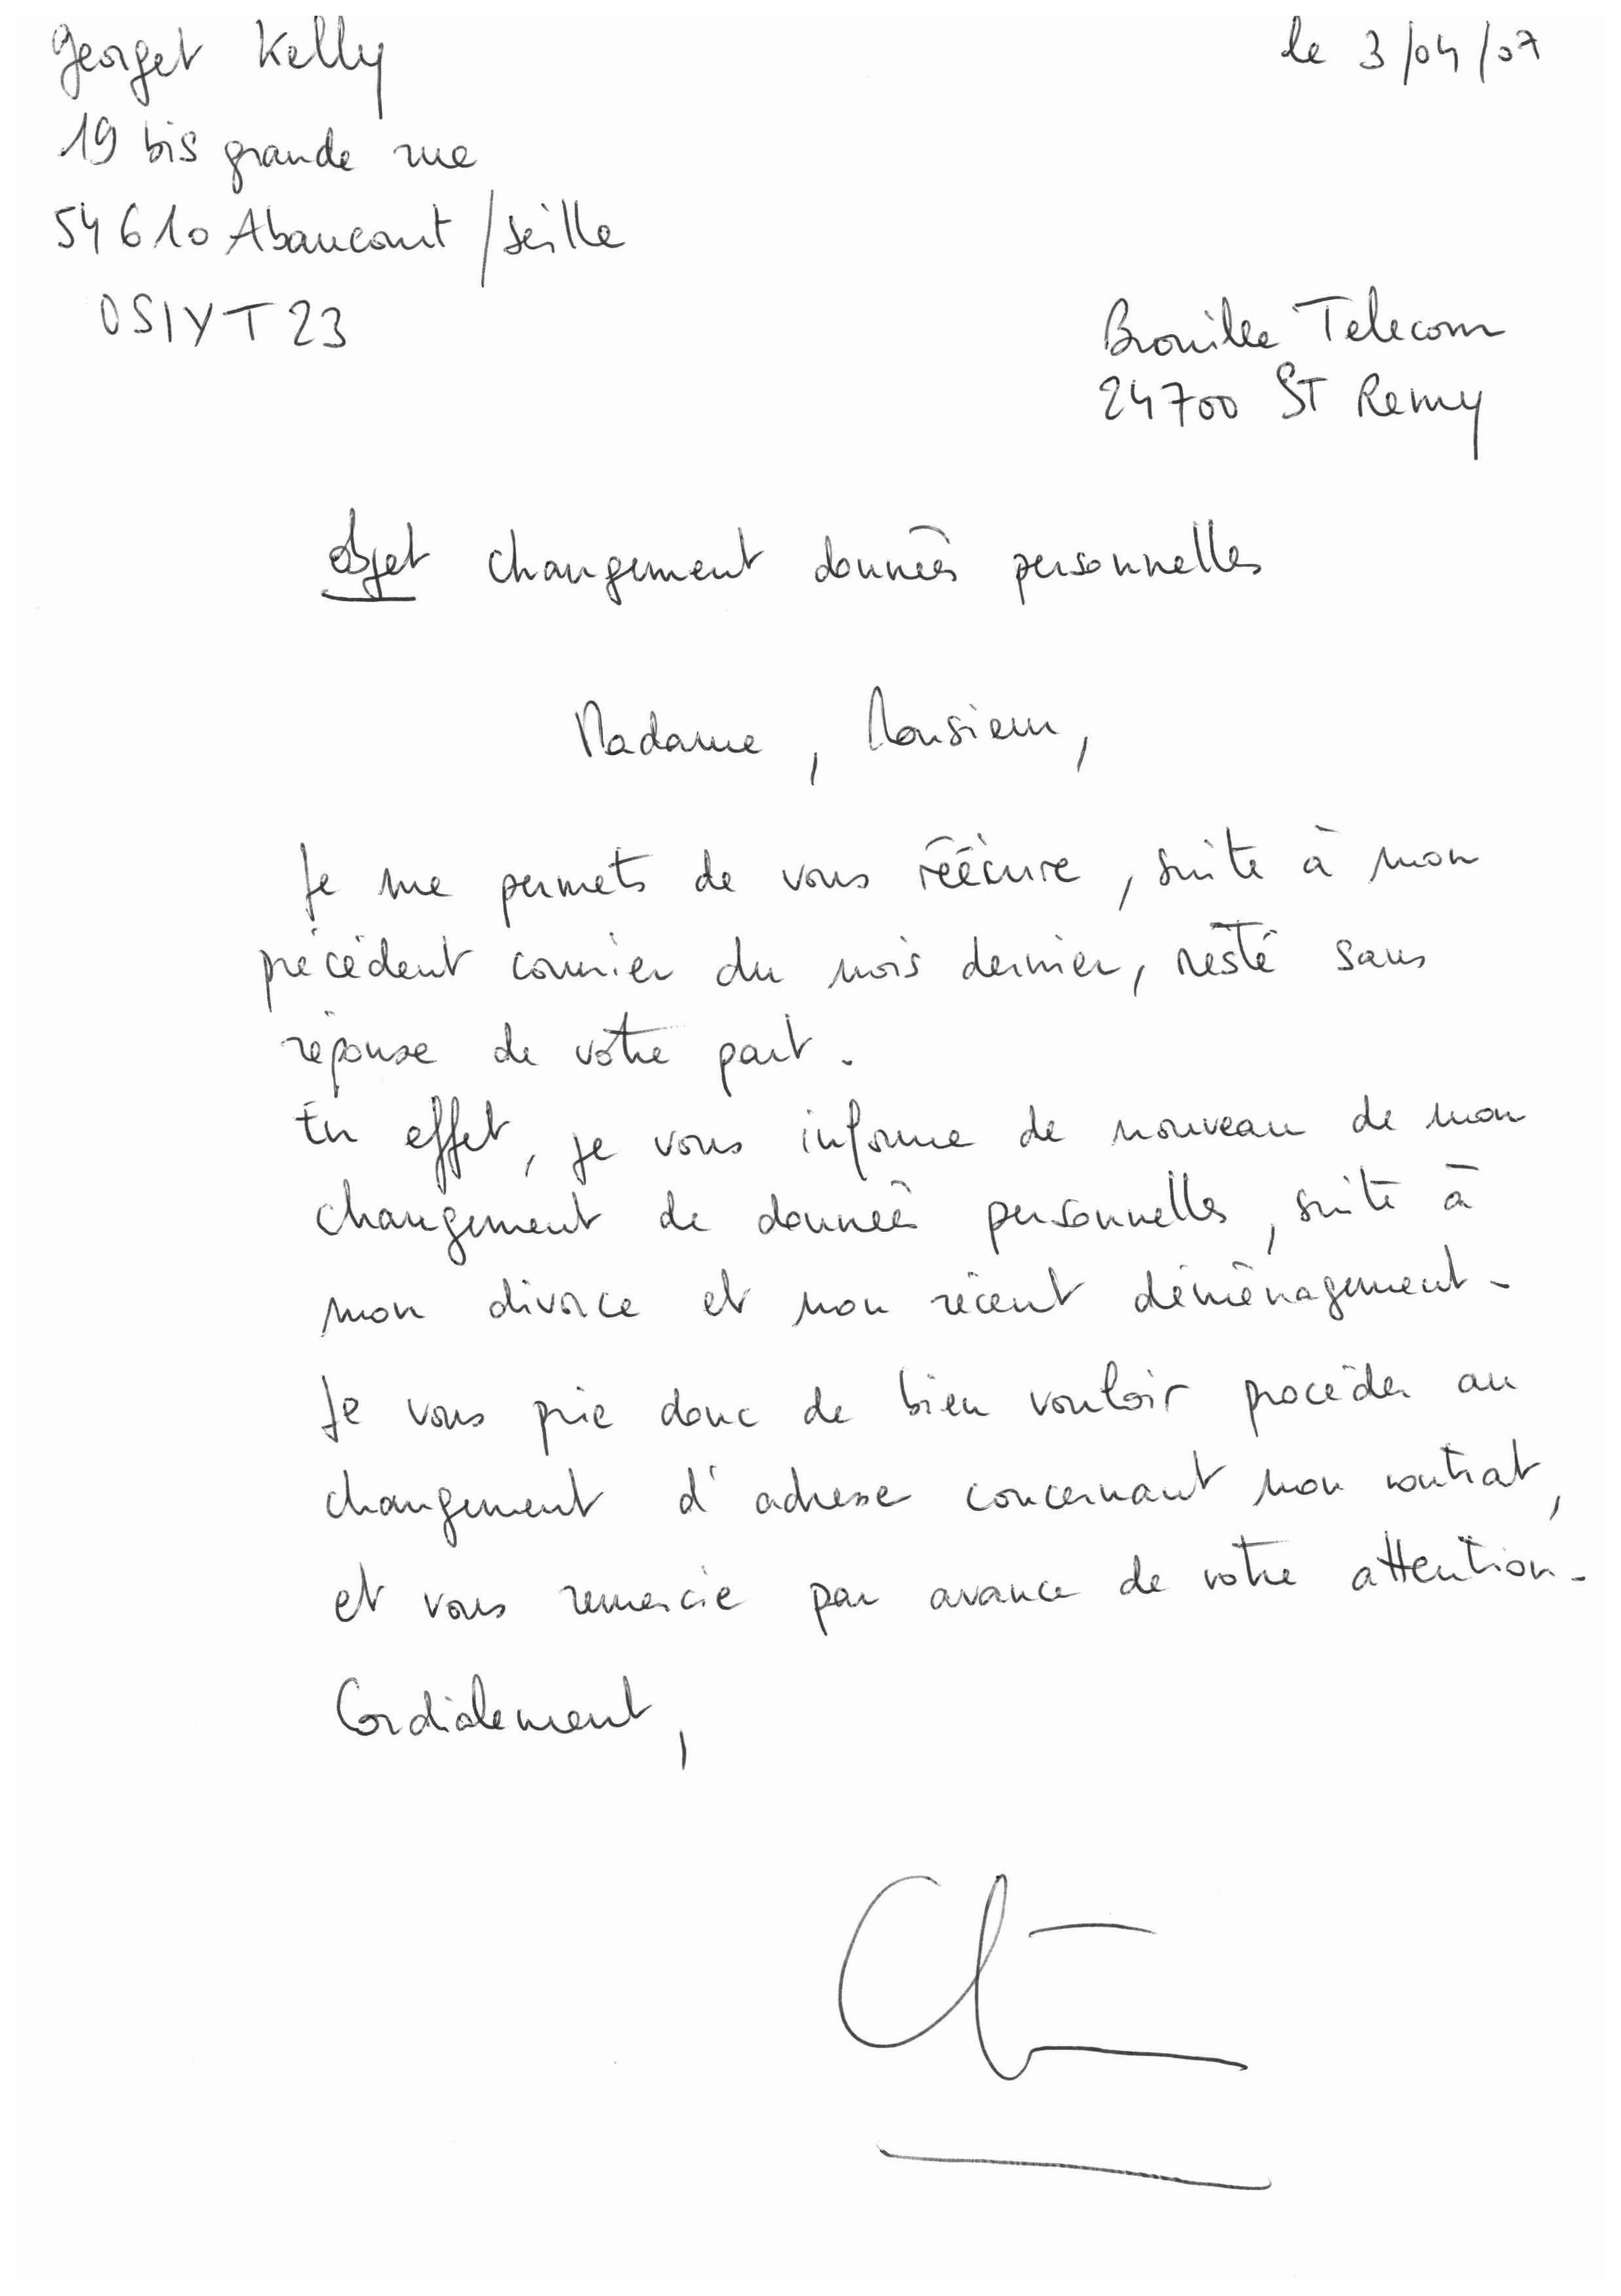 Georget Kelly
le 3/04/07
19 bis grande rue
54610 Abaucourt/seille
OSIYT23
Brouille Telecom
24700 ST Remy
objet changement données personnelles
Madame, Monsieur,
Je me permets de vous réécrire, suite à mon
précédent courrier du mois dernier, resté sans
réponse de votre part.
En effet, je vous informe de nouveau de mon
changement de données personnelles, suite à
mon divorce et mon récent déménagement.
Je vous prie donc de bien vouloir procéder au
changement d'adresse concernant mon contrat,
et vous remercie par avance de votre attention.
Cordialement,